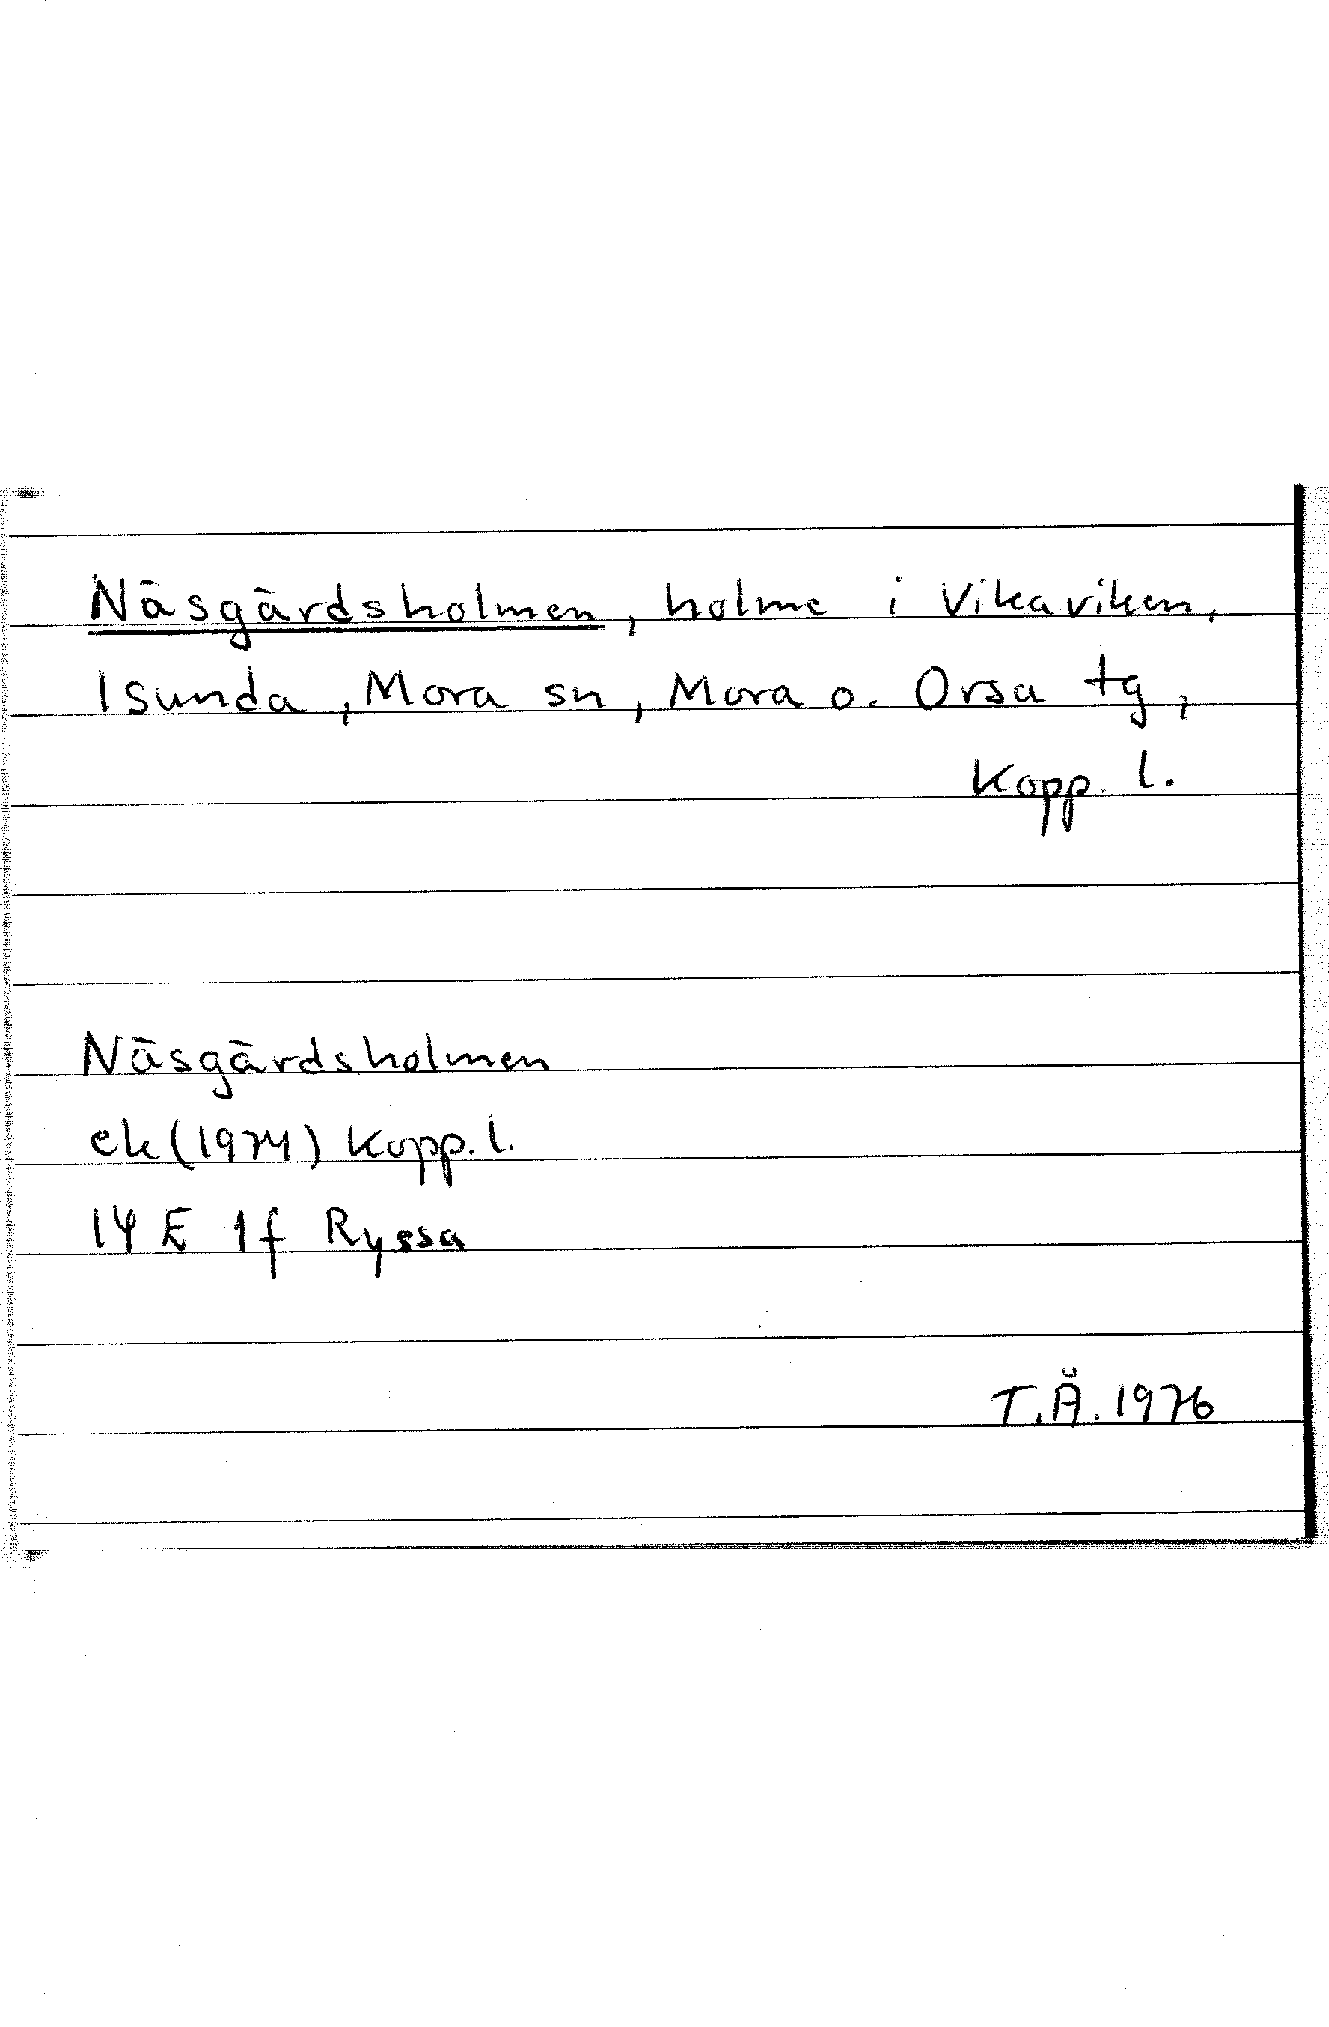 Näsgärdsholmen, holme i Vikaviken,
Isunda, Mora sn, Mora o. Orsa tg,
Kopp. l.
Näsgärdsholmen
ek (1974) Kopp. l.
14 E 1f Ryssa
T.Å. 1976